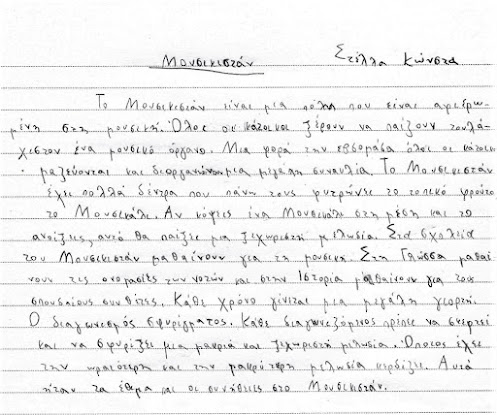 Μουσικιστάν Στέλλα Κώνστα
Το Μουσικιστάν είναι μια πόλη που είναι αφιερω-
μένη στη μουσική. Όλος οι κάτοικοι ξέρουν να παίζουν τουλά-
χιστον ένα μουσικό όργανο. Μια φορά την εβδομάδα όλοι οι κάτοικοι
μαζεύονται και διοργανώνουν μια μεγάλη συναυλία. Το Μουσικιστάν
έχει πολλά δέντρα που πάνω τους φυτρώνει το τοπικό φρούτο
το Μουσικάλι. Αν κόψεις ένα Μουσικάλι στη μέση και το
ανοίξεις, αυτό θα παίξει μια ξεχωριστή μελωδία. Στα σχολεία
του Μουσικιστάν μαθαίνουν για τη μουσική. Στη Γλώσσα μαθαί
νουν τις ονομασίες των νοτών και στην Ιστορία μαθαίνουν για τους
σπουδαίους συνθέτες. Κάθε χρόνο γίνεται μια μεγάλη γιορτή.
Ο διαγωνισμός σφυρίγματος. Κάθε διαγωνιζόμενος πρέπει να
και να σφυρίξει μια μακριά και ξεχωριστή μελωδία. Όποιος έχει
την ωραιότερη και την μακρύτερη μελωδία κερδίζει. Αυτά
ήταν τα έθιμα και οι συνήθειες στο Μουσικιστάν.